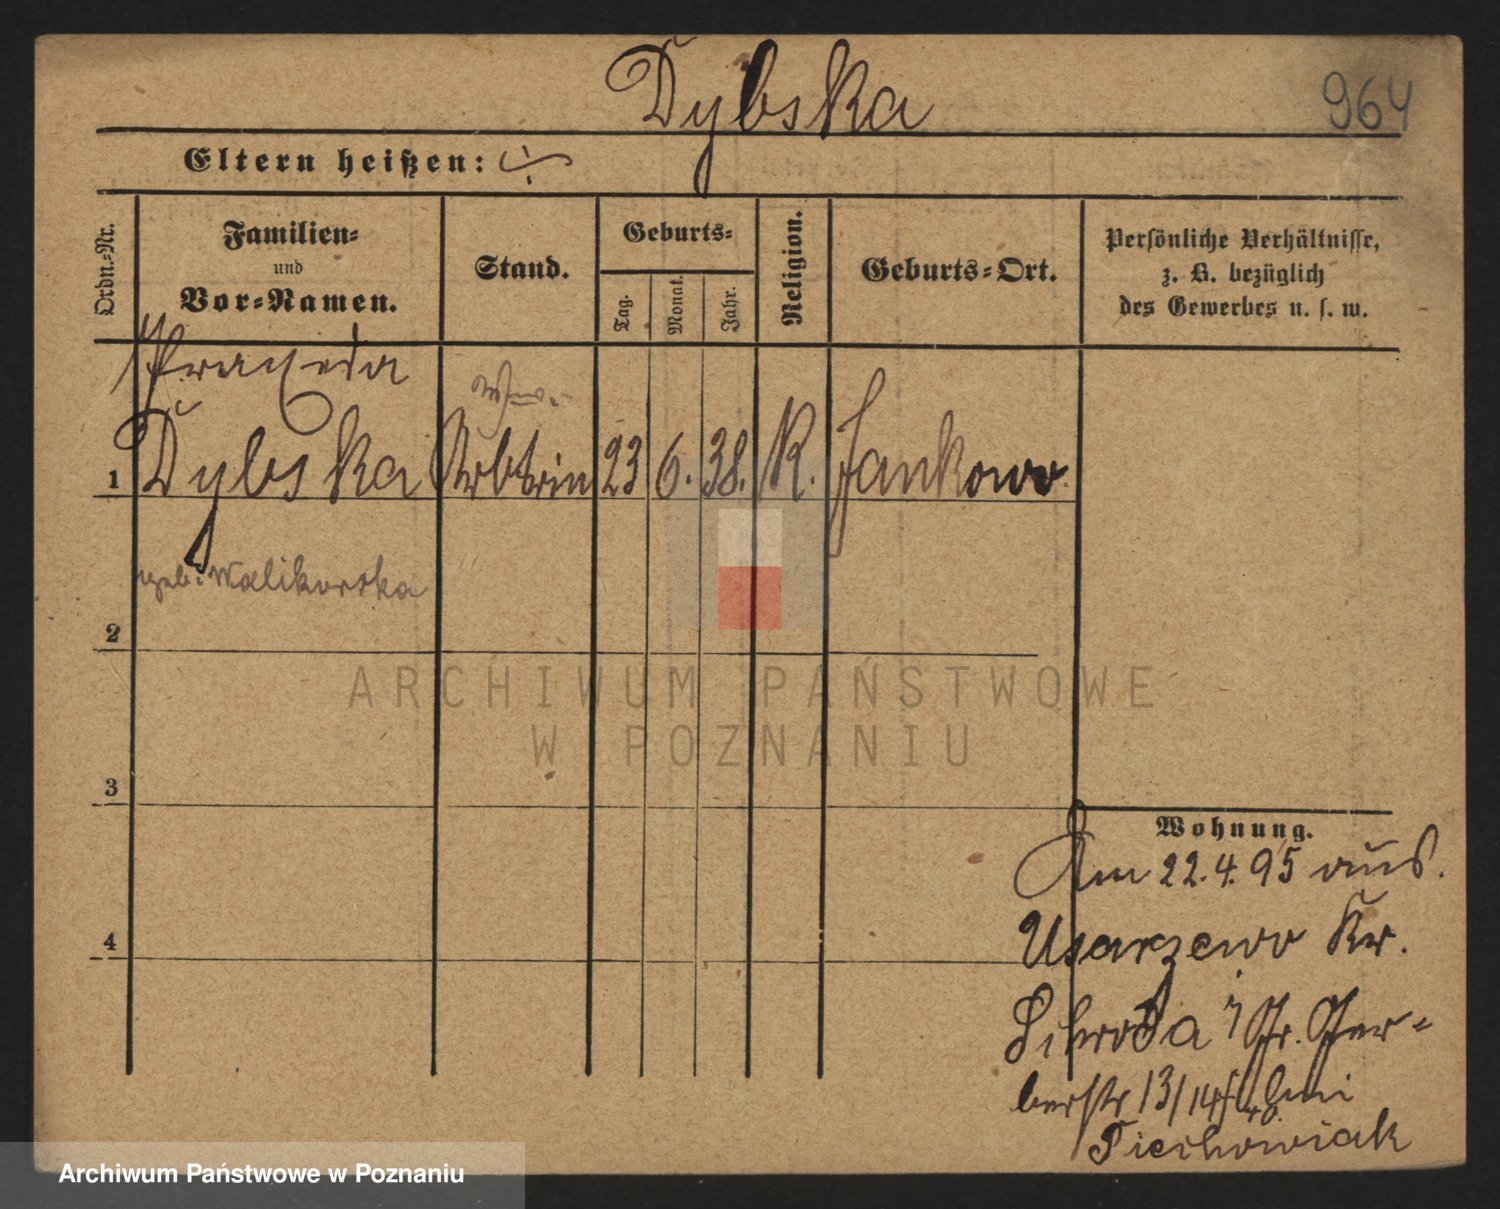 Dybska
964
Eltern heißen: ÷
Ordn.-Nr.
Familien-
und
Vor-Namen.
Stand.
Geburts-
Tag.
Monat.
Jahr.
Religion.
Geburts-Ort.
Persönliche Verhältnisse,
z. B. bezüglich
des Gewerbes u. s. w.
Praxeda
1 Dybska Arbtrin 23 6. 38. K. Jankowo
geb: Walikowska
2
3
4
Wohnung.
Am 22.4.95 aus.
Usarzewo Kr.
Schroda Gr. Ger-
berstr 13/14 bei
Ciechowiak
ARCHIWUM PAŃSTWOWE
W POZNANIU
Archiwum Państwowe w Poznaniu